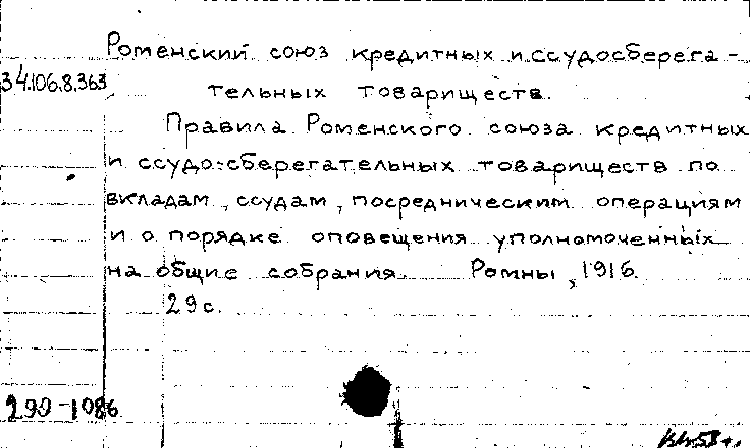 Роменский союз кредитных и ссудосберега-
34.106.8.363
тельных товариществ.
Правила Роменского союза кредитных
и ссудо-сберегательных товариществ по
вкладам, ссудам, посредническим операциям
и о порядке оповещения уполномоченных
на общие собрания. Ромны, 1916.
29 с.
290-1086